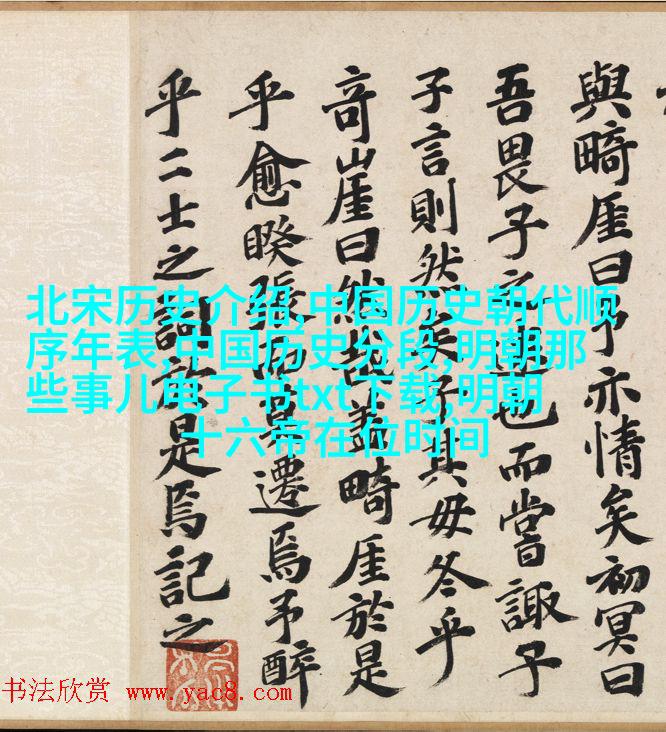 與畸厓曰予亦情矣初冥曰
吾畏子之也而嘗諏子
子言則然矣子其毋冬乎
奇崖曰然盖畸厓於是
乎愈睽張而遷焉予醉
乎二士之詞於是焉記之
北宋历史介绍,中国历史朝代顺
序年表,中国历史分段,明朝那
些事儿电子书txt下载,明朝
十六帝在位时间
书法欣赏 www.yac8.com